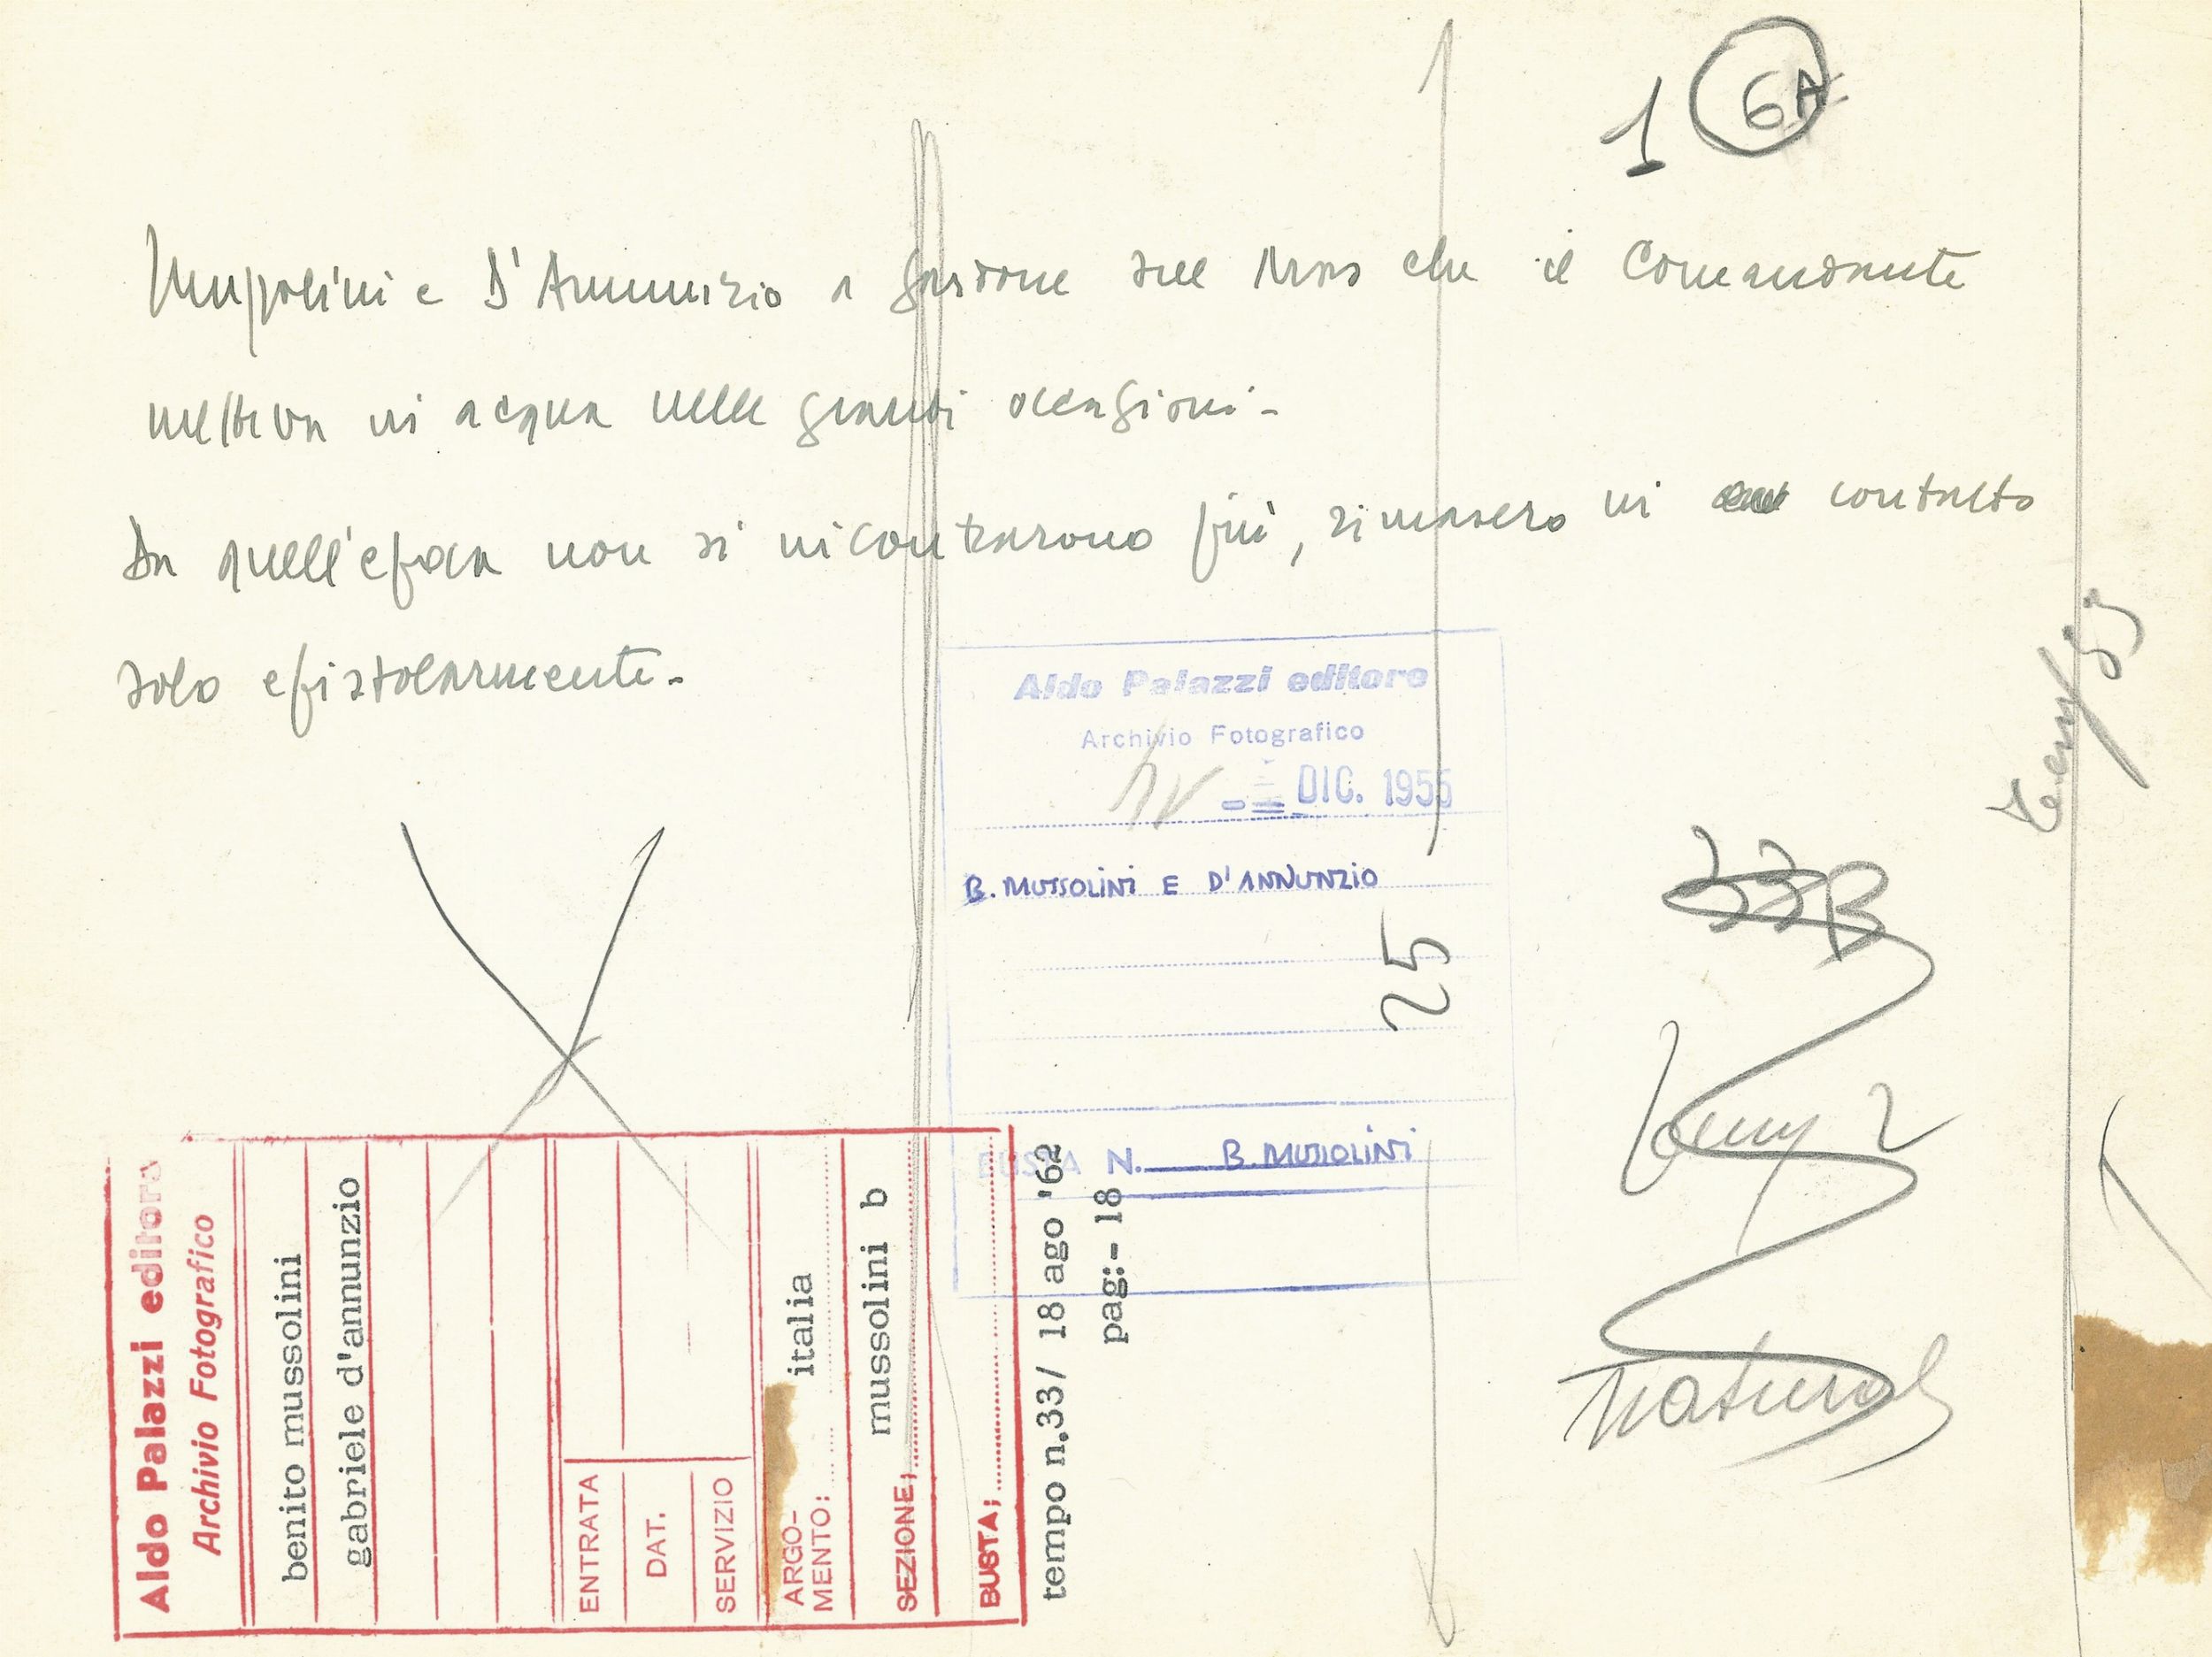 1 6A
Mussolini e D'Annunzio a Gardone sul Mas che il Comandante
metteva in acqua nelle grandi occasioni-
Da quell'epoca non si incontrarono più, rimasero in contatto
solo epistolarmente-
Aldo Palazzi editore
Archivio Fotografico
DIC. 1955
B. MUSSOLINI E D'ANNUNZIO
25
BUSTA N. B. MUSSOLINI
33B
2
Natural
Aldo Palazzi editore
Archivio Fotografico
benito mussolini
gabriele d'annunzio
ENTRATA
DAT.
SERVIZIO
ARGO-
MENTO: italia
SEZIONE; mussolini b
BUSTA;
tempo n.33/ 18 ago '62
pag:- 18